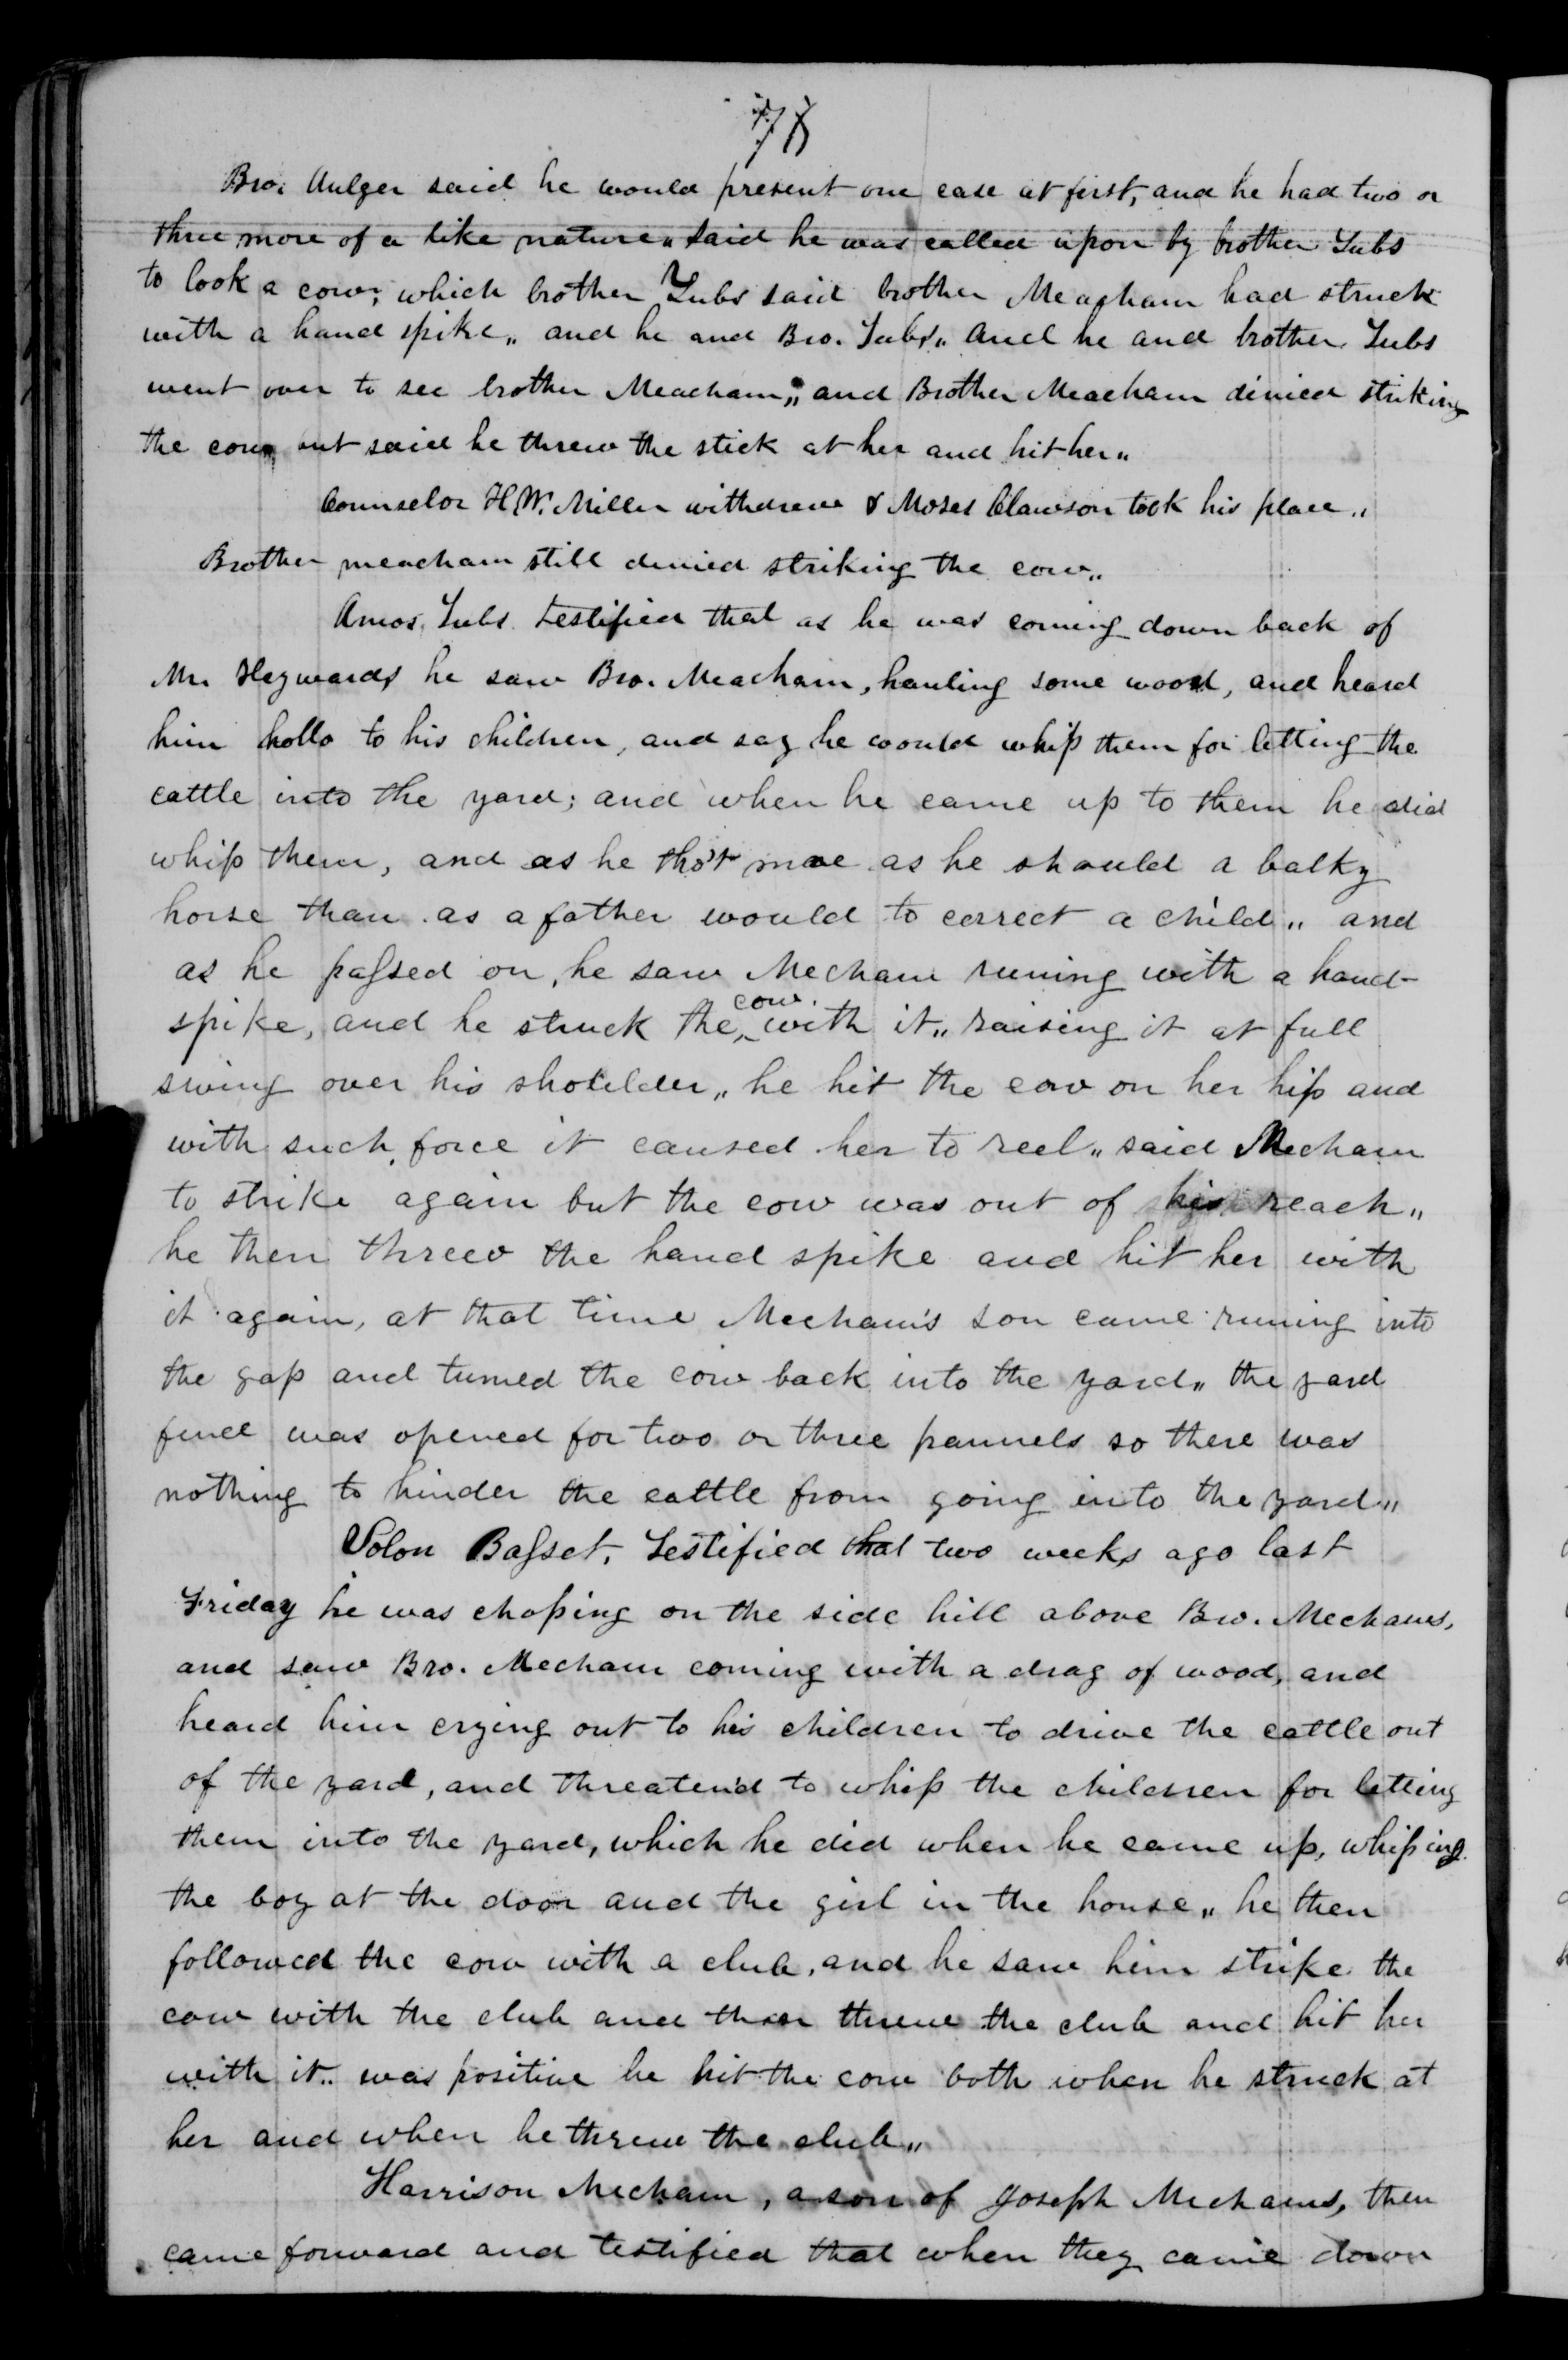 78
Bro. Aulger said he would present one case at first, and he had two or
three more of a like nature,, said he was called upon by brother Tubs
to look a cow, which brother Tubs said brother Meacham had struck
with a hand spike,, and he and Bro. Tubs,, and he and brother Tubs
went over to see brother Meacham,, and Brother Meacham dinied striking
the cow but said he threw the stick at her and hit her,,
Counselor H.W. Miller withdrew & Moses Clawson took his place,,
Brother meacham still denied striking the cow,,
Amos Tubs testified that as he was coming down back of
Mr. Heywards he saw Bro. Meacham, hauling some wood, and heard
him hollo to his children, and say he would whip them for letting the
cattle into the yard; and when he came up to them he did
whip them, and as he tho't more as he should a balky
horse than as a father would to correct a child,, and
as he passed on, he saw Mecham runing with a hand-
spike, and he struck the cow with it,, raising it at full
swing over his sholilder,, he hit the cow on her hip and
with such force it caused her to reel,, said Mecham
to strike again but the cow was out of his reach,,
he then threw the hand spike and hit her with
it again, at that time Mecham's son came runing into
the gap and turned the cow back into the yard,, the yard
fence was opened for two or three pannels so there was
nothing to hinder the cattle from going into the yard,,
Solon Basset, Testified that two weeks ago last
Friday he was choping on the side hill above Bro. Mechams,
and saw Bro. Mecham coming with a drag of wood, and
heard him crying out to his children to drive the cattle out
of the yard, and threaten'd to whip the children for letting
them into the yard, which he did when he came up, whiping
the boy at the door and the girl in the house,, he then
followed the cow with a club, and he saw him strike the
cow with the club and then threw the club and hit her
with it,, was positive he hit the cow both when he struck at
her and when he threw the club,,
Harrison Mecham, a son of Joseph Mechams, then
came forward and testified that when they came down